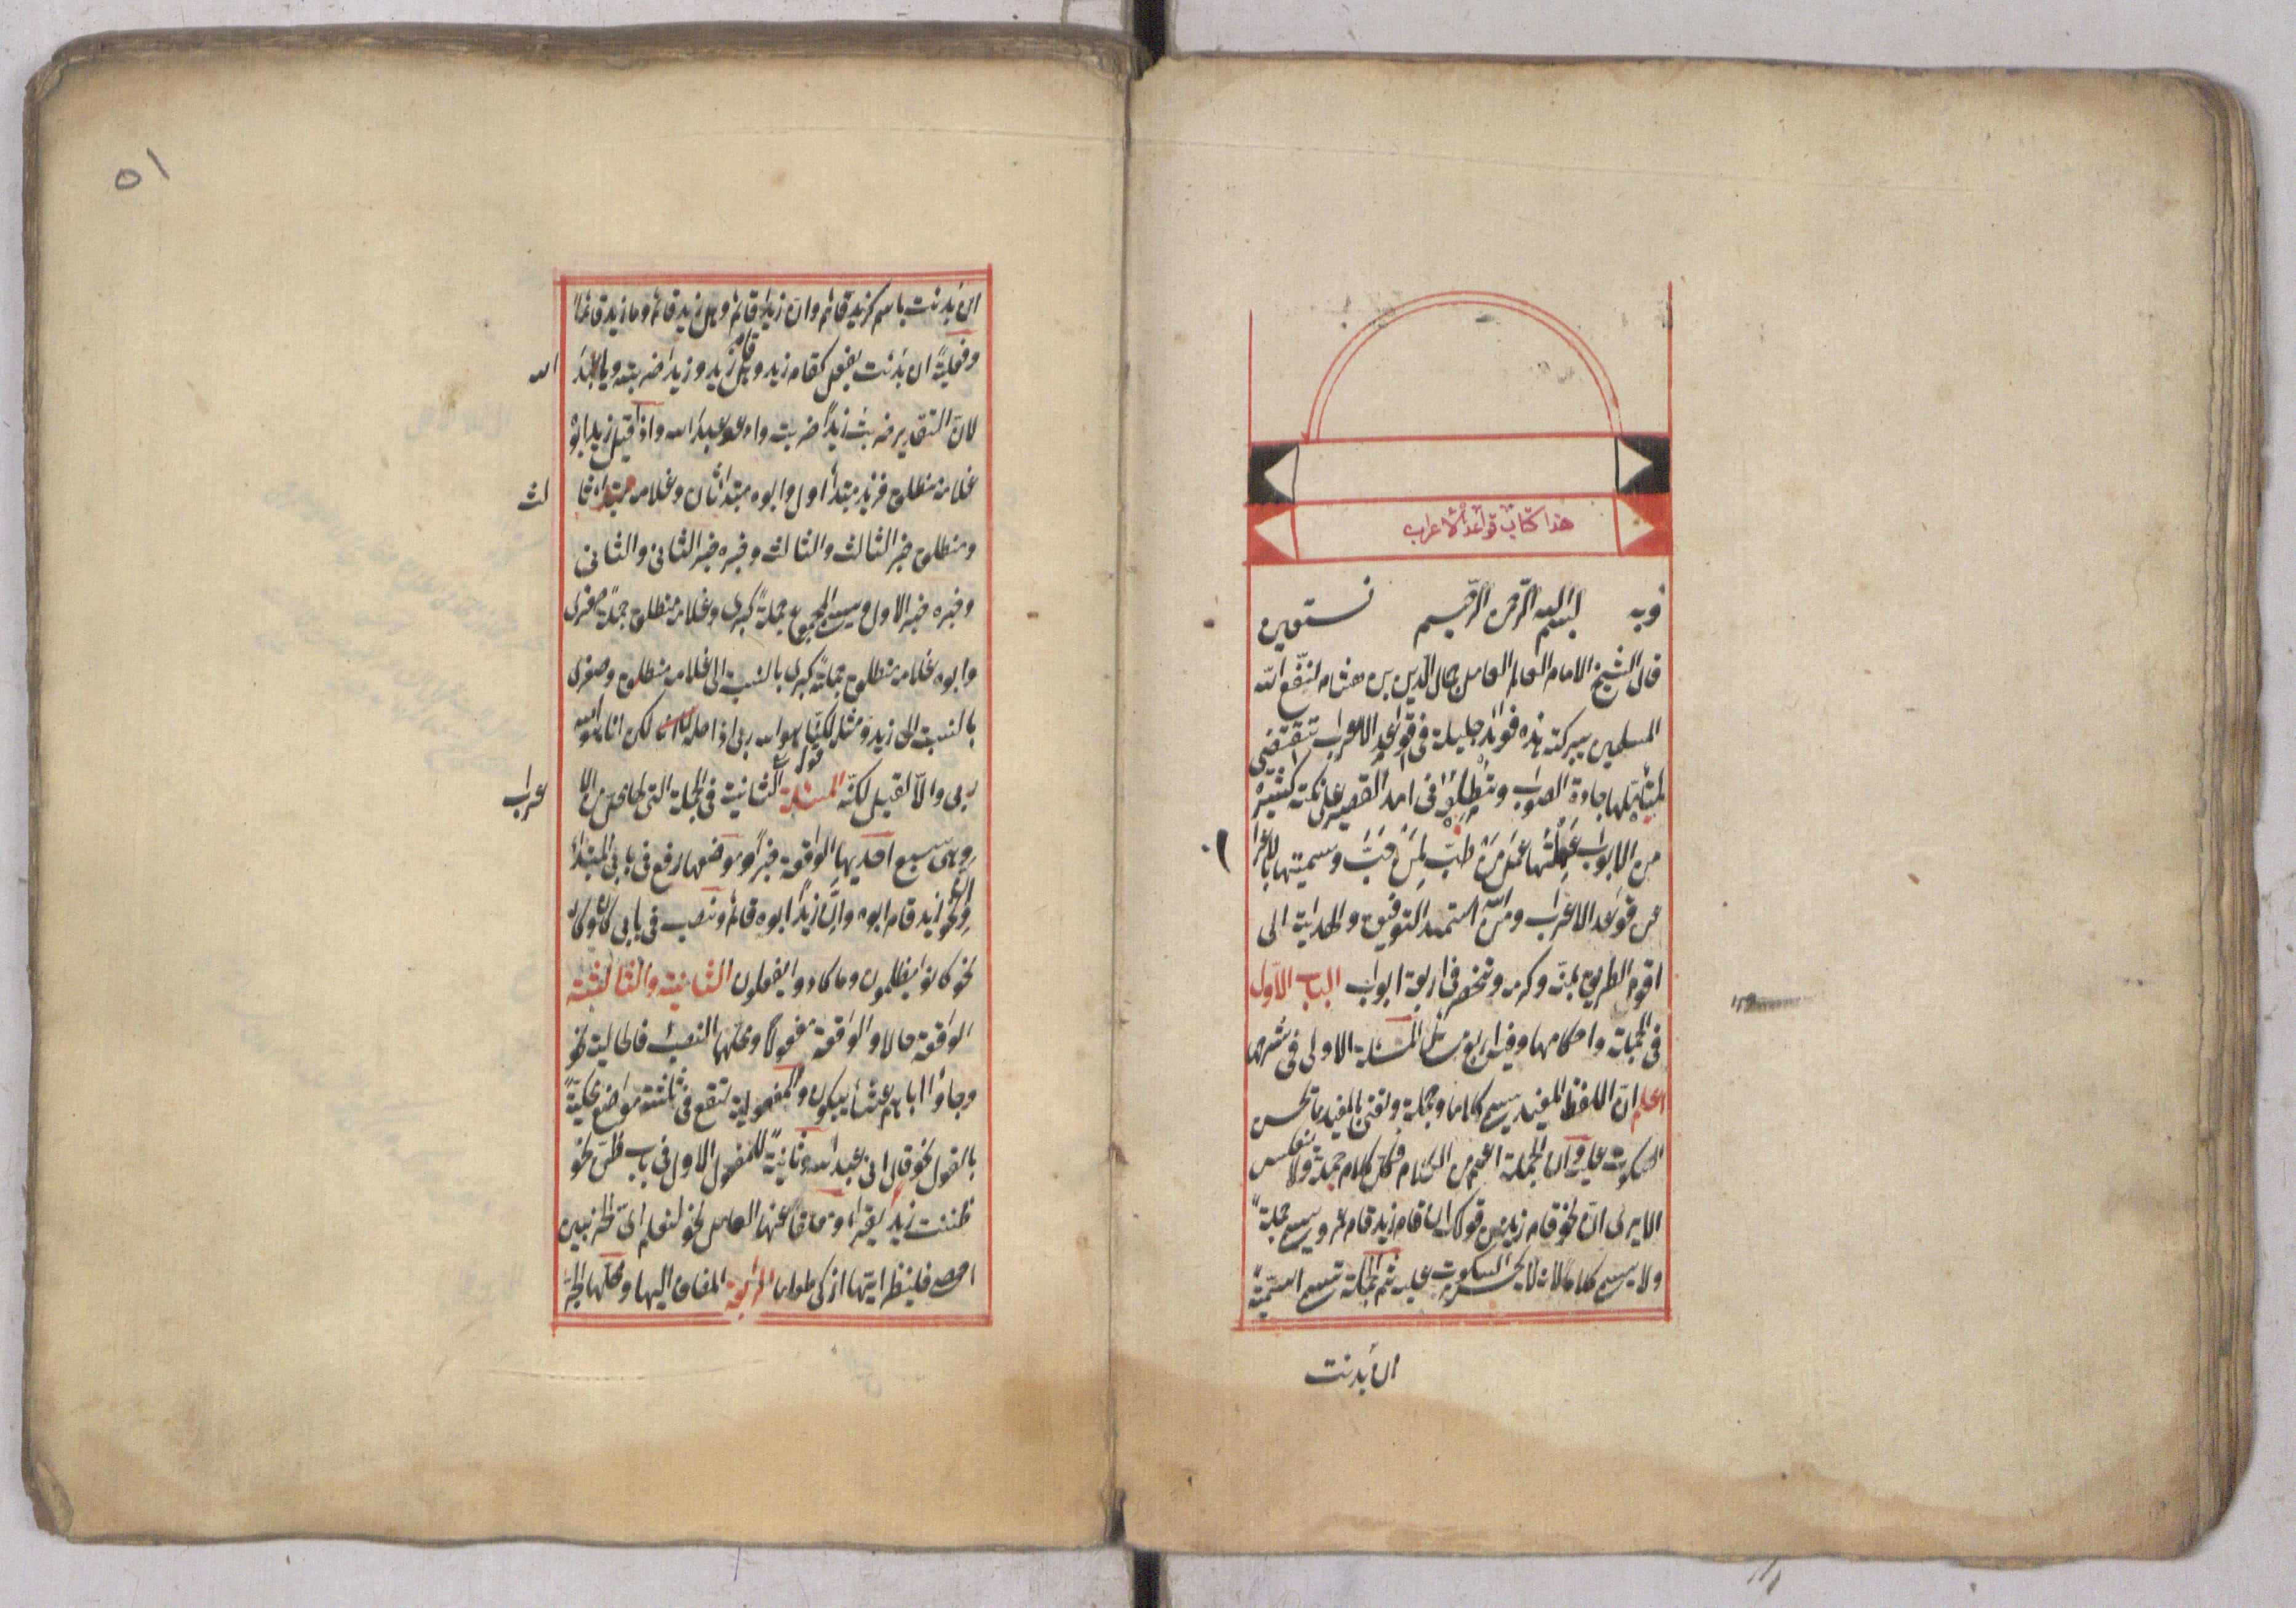 هذا كتاب قواعد الاعراب
وبه بسم الله الرحمن الرحيم نستعين
قال الشيخ الامام العالم العامل جمال الدين بن هشام لنفع الله
المسلمين ببركته هذه فوائد جليلة فى قواعد الاعراب تقتفى
لمتأملها جادة الصواب وتطلعه فى امد القصير على نكتة كثيرة
من الابواب عملتها عمل من طب لمن حب وسميتها بالاعرا
ب
عن قواعد الاعراب ومن الله استمد التوفيق والهداية الى
اقوم الطريق بمنه وكرمه وتنحصر فى اربعة ابواب الباب الاول
فى الجملة واحكامها وفيه اربع مسائل المسئلة الاولى فى شرحها
اعلم ان اللفظ المفيد يسمى كلاما وجملة ونعنى بالمفيد ما يحسن
السكوت عليه وان الجملة اعم من الكلام فكل كلام جملة ولا ينعكس
الا يرى ان نحو قام زيد من قولك ان قام زيد قام عمرو يسمى جملة
ولا يسمى كلاما لانه لا يحسن السكوت عليه ثم الجملة تسمى اسمية
ان بدئت
٥١
ان بدئت باسم كزيد قائم وان زيدا قائم وهل زيد قائم وما زيد قائما
وفعلية ان بدئت بفعل كقام زيد وهل قام زيد وزيدا ضربته ويا عبد
الله
لان التقدير ضربت زيدا ضربت وادعو عبد الله واذا قيل زيد ابوه
غلامه منطلق فزيد مبتدأ اول وابوه مبتدأ ثان وغلامه مبتدأ ثا
لث
ومنطلق خبر الثالث والثالث وخبره خبر الثانى والثانى
وخبره خبر الاول ويسمى المجموع جملة كبرى وغلامه منطلق جملة صغرى
وابوه غلامه منطلق جملة كبرى بالنسبة الى غلامه منطلق وصغرى
بالنسبة الى زيد ومثله لكنا هو الله ربى اذ اصله لكن انا هو الله
ربى والا لقيل لكنه المسئلة الثانية فى الجملة التى لها محل من الا
عراب
وهى سبع احديها الواقعة خبرا وموضعها رفع فى بابى المبتدأ
وان نحو زيد قام ابوه وان زيدا ابوه قائم ونصب فى بابى كان وكاد
نحو كانوا يظلمون وما كادوا يفعلون الثانية والثالثة
الواقعة حالا والواقعة مفعولا ومحلها النصب فالحالية نحو
وجاؤا اباهم عشاء يبكون والمفعولية تقع فى ثلثة مواضع محكية
بالقول نحو قال انى عبد الله وثانية للمفعول الاول فى باب ظن نحو
ظننت زيدا يقرأ ومعلقا عنها العامل نحو لنعلم اى الحزبين
احصى فلينظر ايها ازكى طعاما الرابعة المضاف اليها ومحلها الجر